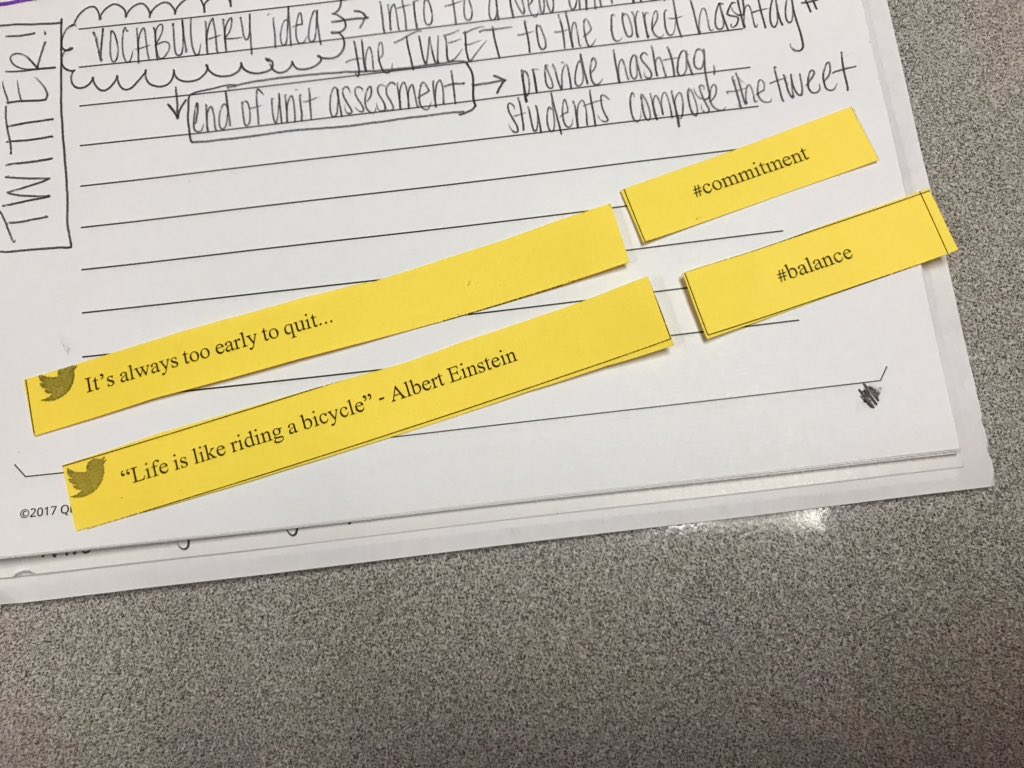 TWITTER!
VOCABULARY idea → Intro to a New unit
the TWEET to the correct hashtag #
end of unit assessment → provide hashtag,
students compose the tweet
#commitment
It's always too early to quit...
#balance
“Life is like riding a bicycle” - Albert Einstein
©2017